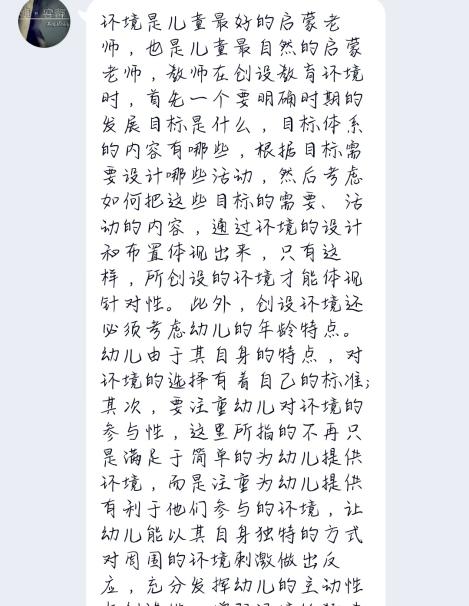 环境是儿童最好的启蒙老
师，也是儿童最自然的启蒙
老师，教师在创设教育环境
时，首先一个要明确时期的
发展目标是什么，目标体系
的内容有哪些，根据目标需
要设计哪些活动，然后考虑
如何把这些目标的需要、活
动的内容，通过环境的设计
和布置体现出来，只有这
样，所创设的环境才能体现
针对性。此外，创设环境还
必须考虑幼儿的年龄特点。
幼儿由于其自身的特点，对
环境的选择有着自己的标准；
其次，要注重幼儿对环境的
参与性，这里所指的不再只
是满足于简单的为幼儿提供
环境，而是注重为幼儿提供
有利于他们参与的环境，让
幼儿能以其自身独特的方式
对周围的环境刺激做出反
应，充分发挥幼儿的主动性